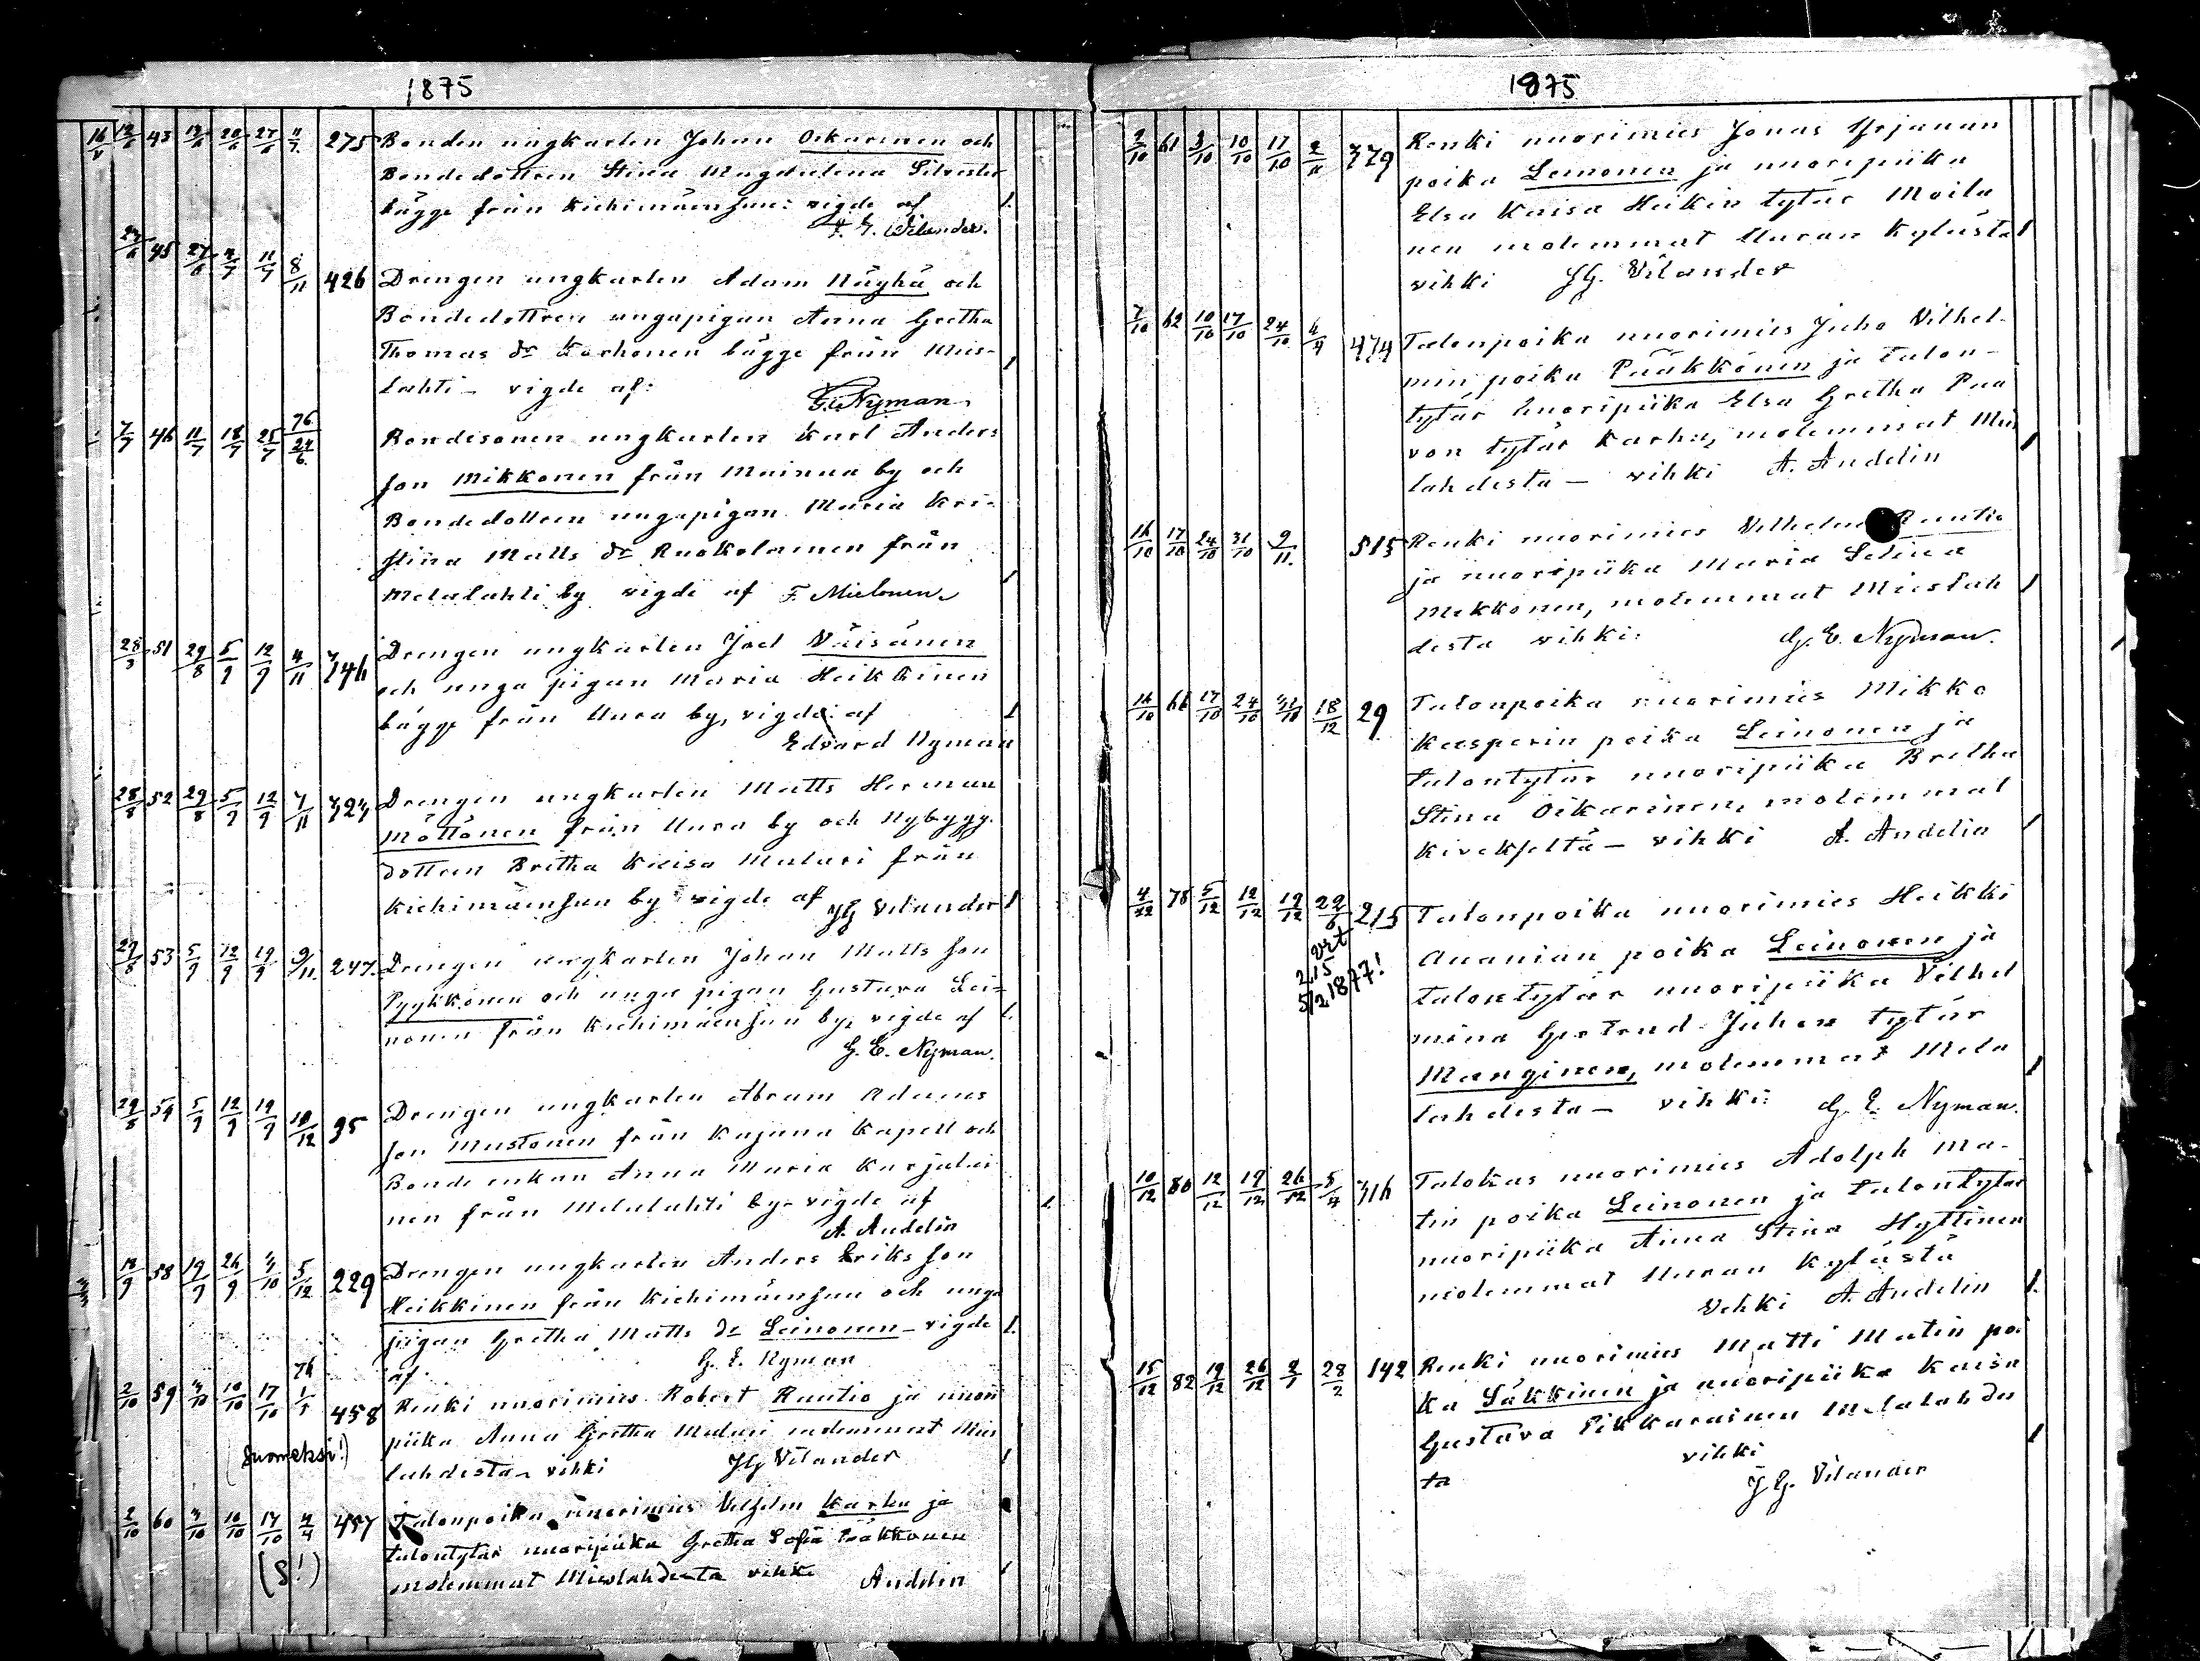 1875
16/5 12/6 43 13/6 20/6 27/6 11/7 275 Bonden ungkarlen Johan Oikarinen och
Bondedottren Stina Magdalena Silvester
bägge från Kiehimäensuu: vigde af
J. G. Vilander.
24/6 45 27/6 4/7 11/7 8/11 426 Drengen ungkarlen Adam Näyhä och
Bondedottren ungapigan Anna Gretha
Thomas dr Karhonen bägge från Mies-
lahti – vigde af:
G. E. Nyman
7/7 46 11/7 18/7 25/7 76 24/6 Bondesonen ungkarlen Karl Anders
son Mikkonen från Mainua by och
Bondedottren ungapigan Maria Kri-
stina Matts dr Ruokolainen från
Melalahti by vigde af F. Mielonen
28/8 51 29/8 5/9 12/9 4/11 346 Drengen ungkarlen Joel Väisänen
och unga pigan Maria Heikkinen
bägge från Uura by, vigda af
Edvard Nyman
28/8 52 29/8 5/9 12/9 7/11 323 Drengen ungkarlen Matts Herman
Möttönen från Uura by och Nybygg.
dottren Britha Kaisa Mulari från
Kiehimäensuu by vigde af JG Vilander
29/8 53 5/9 12/9 19/9 9/11. 247. Drengen ungkarlen Johan Matts son
Pyykkönen och unga pigan Gustava Lei-
nonen från Kiehimäensuu by, vigde af
G. E. Nyman.
29/8 54 5/9 12/9 19/9 10/12 95 Drengen ungkarlen Abram Adams
son Mustonen från Kajana Kapell och
Bonde enkan Anna Maria Karjalai
nen från Melalahti by. vigde af
A. Andelin
18/9 58 19/9 26/9 3/10 5/12 229 Drengen ungkarlen Anders Eriks son
Heikkinen från Kiehimäensuu och unga
pigan Gretha Matts dr Leinonen – vigde
af. G. E. Nyman
2/10 59 3/10 10/10 17/10 76 1/1 458 Renki nuorimies Robert Ruutio ja nuori
piika Anna Gretha Mulari molemmat Mies
(Suomeksi!)
lahdesta – vihki JG Vilander
2/10 60 3/10 10/10 17/10 4/4 457 Talonpoika nuorimies Vilhelm Karhu ja
talontytär nuoripiika Gretha Sofia Pääkkönen
(S!)
molemmat Mieslahdesta vihki Andelin
1875
2/10 61 3/10 10/10 17/10 2/11 379 Renki nuorimies Jonas Yrjänän
poika Leinonen ja nuoripiika
Elsa Kaisa Heikin tytär Moila
nen molemmat Uuran Kylästä
vihki JG. Vilander
7/10 62 10/10 17/10 24/10 4/4 474 Talonpoika nuorimies Juho Vilhel-
min poika Pääkkönen ja talon-
tytär Nuoripiika Elsa Gretha Paa
von tytär Karhu, molemmat Mies
lahdesta – vihki A. Andelin
16/10 17/10 24/10 31/10 9/11. 515 Renki nuorimies Vilhelm Ruutio
ja nuoripiika Maria Selina
Mikkonen, molemmat Mieslah
desta vihki: G. E. Nyman.
16/10 66 17/10 24/10 31/10 18/12 29 Talonpoika nuorimies Mikko
Kasperin poika Leinonen ja
talontytär nuoripiika Britha
Stina Oikarinen, molemmat
Kivekseltä – vihki A. Andelin
4/12 78 5/12 12/12 19/12 29/6 215 Talonpoika nuorimies Heikki
vrt
215
5/2 1877!
Ananian poika Leinonen ja
talontytär nuoripiika Vilhel
mina Gertrud Juhon tytär
Manginen, molemmat Mela
lahdesta – vihki: G. E. Nyman.
10/12 80 12/12 19/12 26/12 5/4 316 Talokas nuorimies Adolph Ma-
tin poika Leinonen ja talontytär
nuoripiika Anna Stina Hyttinen
molemmat Uuran Kylästä
Vihki A. Andelin
15/12 82 19/12 26/12 2/1 28/2 142 Renki nuorimies Matti Matin poi
ka Säkkinen ja nuoripiika Kaisa
Gustava Pikkarainen Melalahdes
ta vihki
J G. Vilander